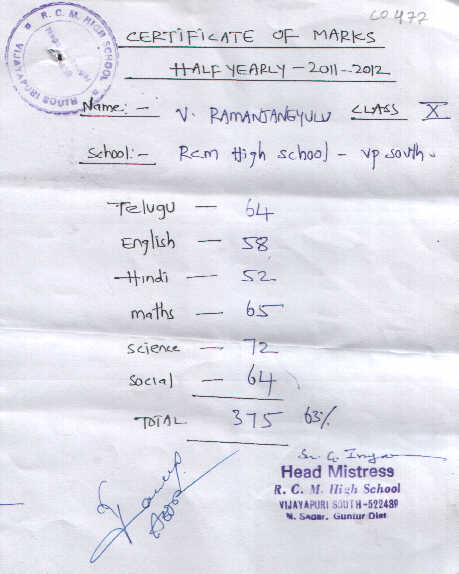 CO 472
R. C. M. HIGH SCHOOL
VIJAYAPURI SOUTH
CERTIFICATE OF MARKS
HALF YEARLY - 2011-2012
Name:- V. RAMANJANEYULU CLASS X
School:- R.C.M High School - VP South.
Telugu - 64
English - 58
Hindi - 52
maths - 65
science - 72
social - 64
TOTAL 375 63%
Head Mistress
R. C. M. High School
VIJAYAPURI SOUTH-522439
N. Sagar, Guntur Dist